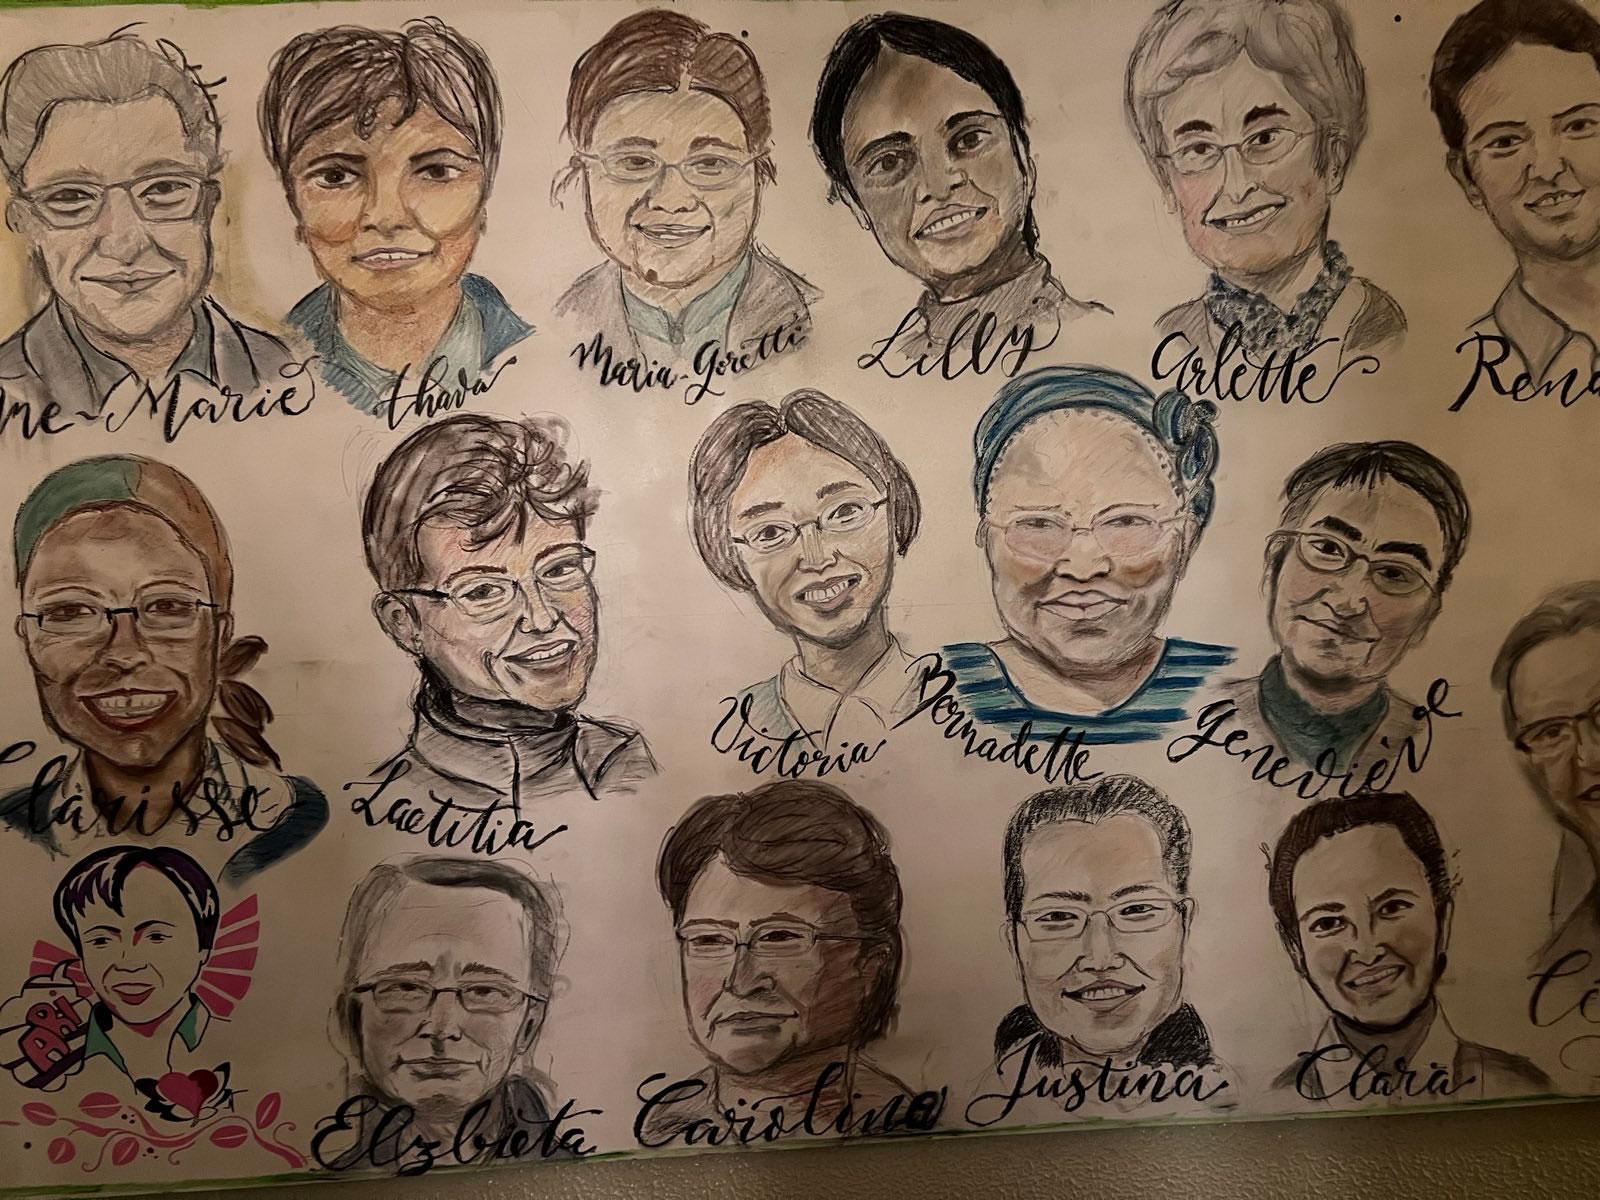 ne-Marie
thava
Maria-Goretti
Lilly
Arlette
Rena
Clarisse
Laetitia
Victoria
Bernadette
Geneviève
ARI
Elzbieta
Caroline
Justina
Clara